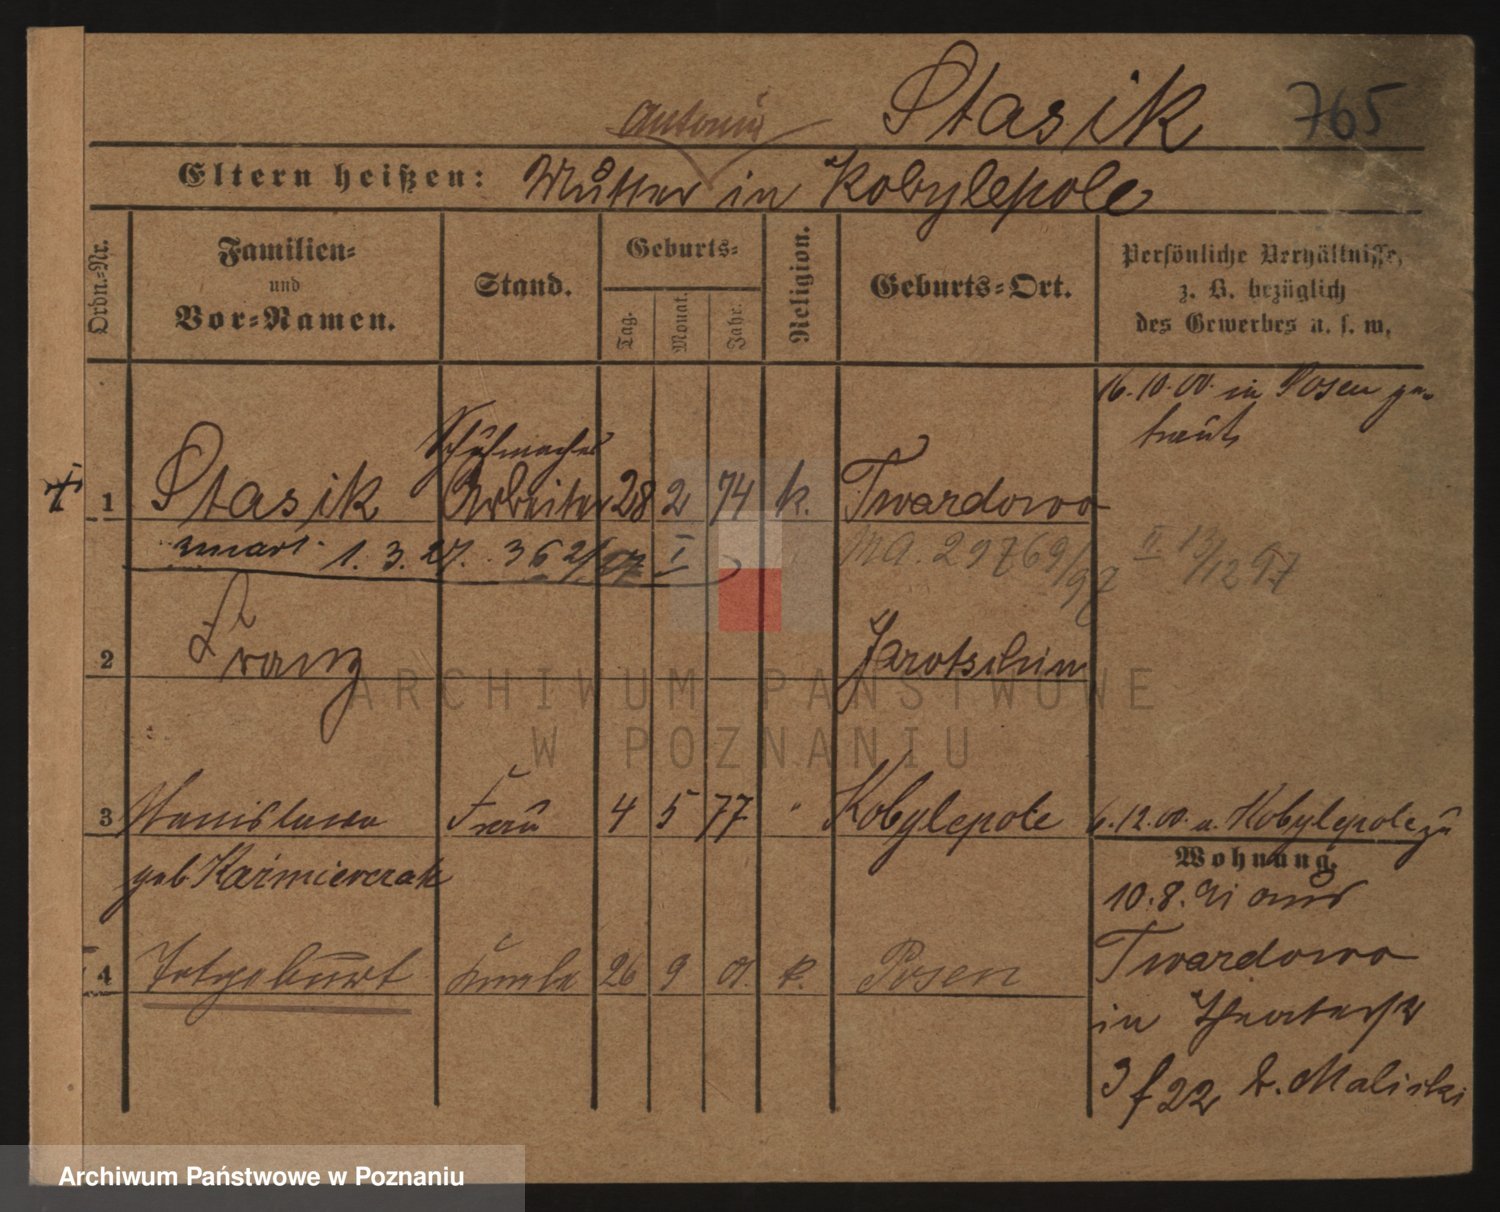 Stasik 765
Antonie
Eltern heißen: Mutter in Kobylepole
Ordn.-Nr.
Familien-
und
Vor-Namen.
Stand.
Geburts-
Tag.
Monat.
Jahr.
Religion.
Geburts-Ort.
Persönliche Verhältnisse,
z. B. bezüglich
des Gewerbes u. s. w.
16.10.00. in Posen ge-
traut
Schuhmacher
1 Stasik Arbeiter 28 2 74 k. Twardowo
zmarł 1. 3. 27. 362/27 I
MA. 29769/97 II 13/12 97
2 Franz Jarotschin
ARCHIWUM PAŃSTWOWE
W POZNANIU
3 Stanislawa Frau 4 5 77 " Kobylepole 6.12.00. a. Kobylepole zu
geb Kaźmierczak
Wohnung.
10.8.91 aus
4 Totgeburt Knabe 26 9 01. k. Posen
Twardowo
in
3 f 22 b. Maliski
Archiwum Państwowe w Poznaniu